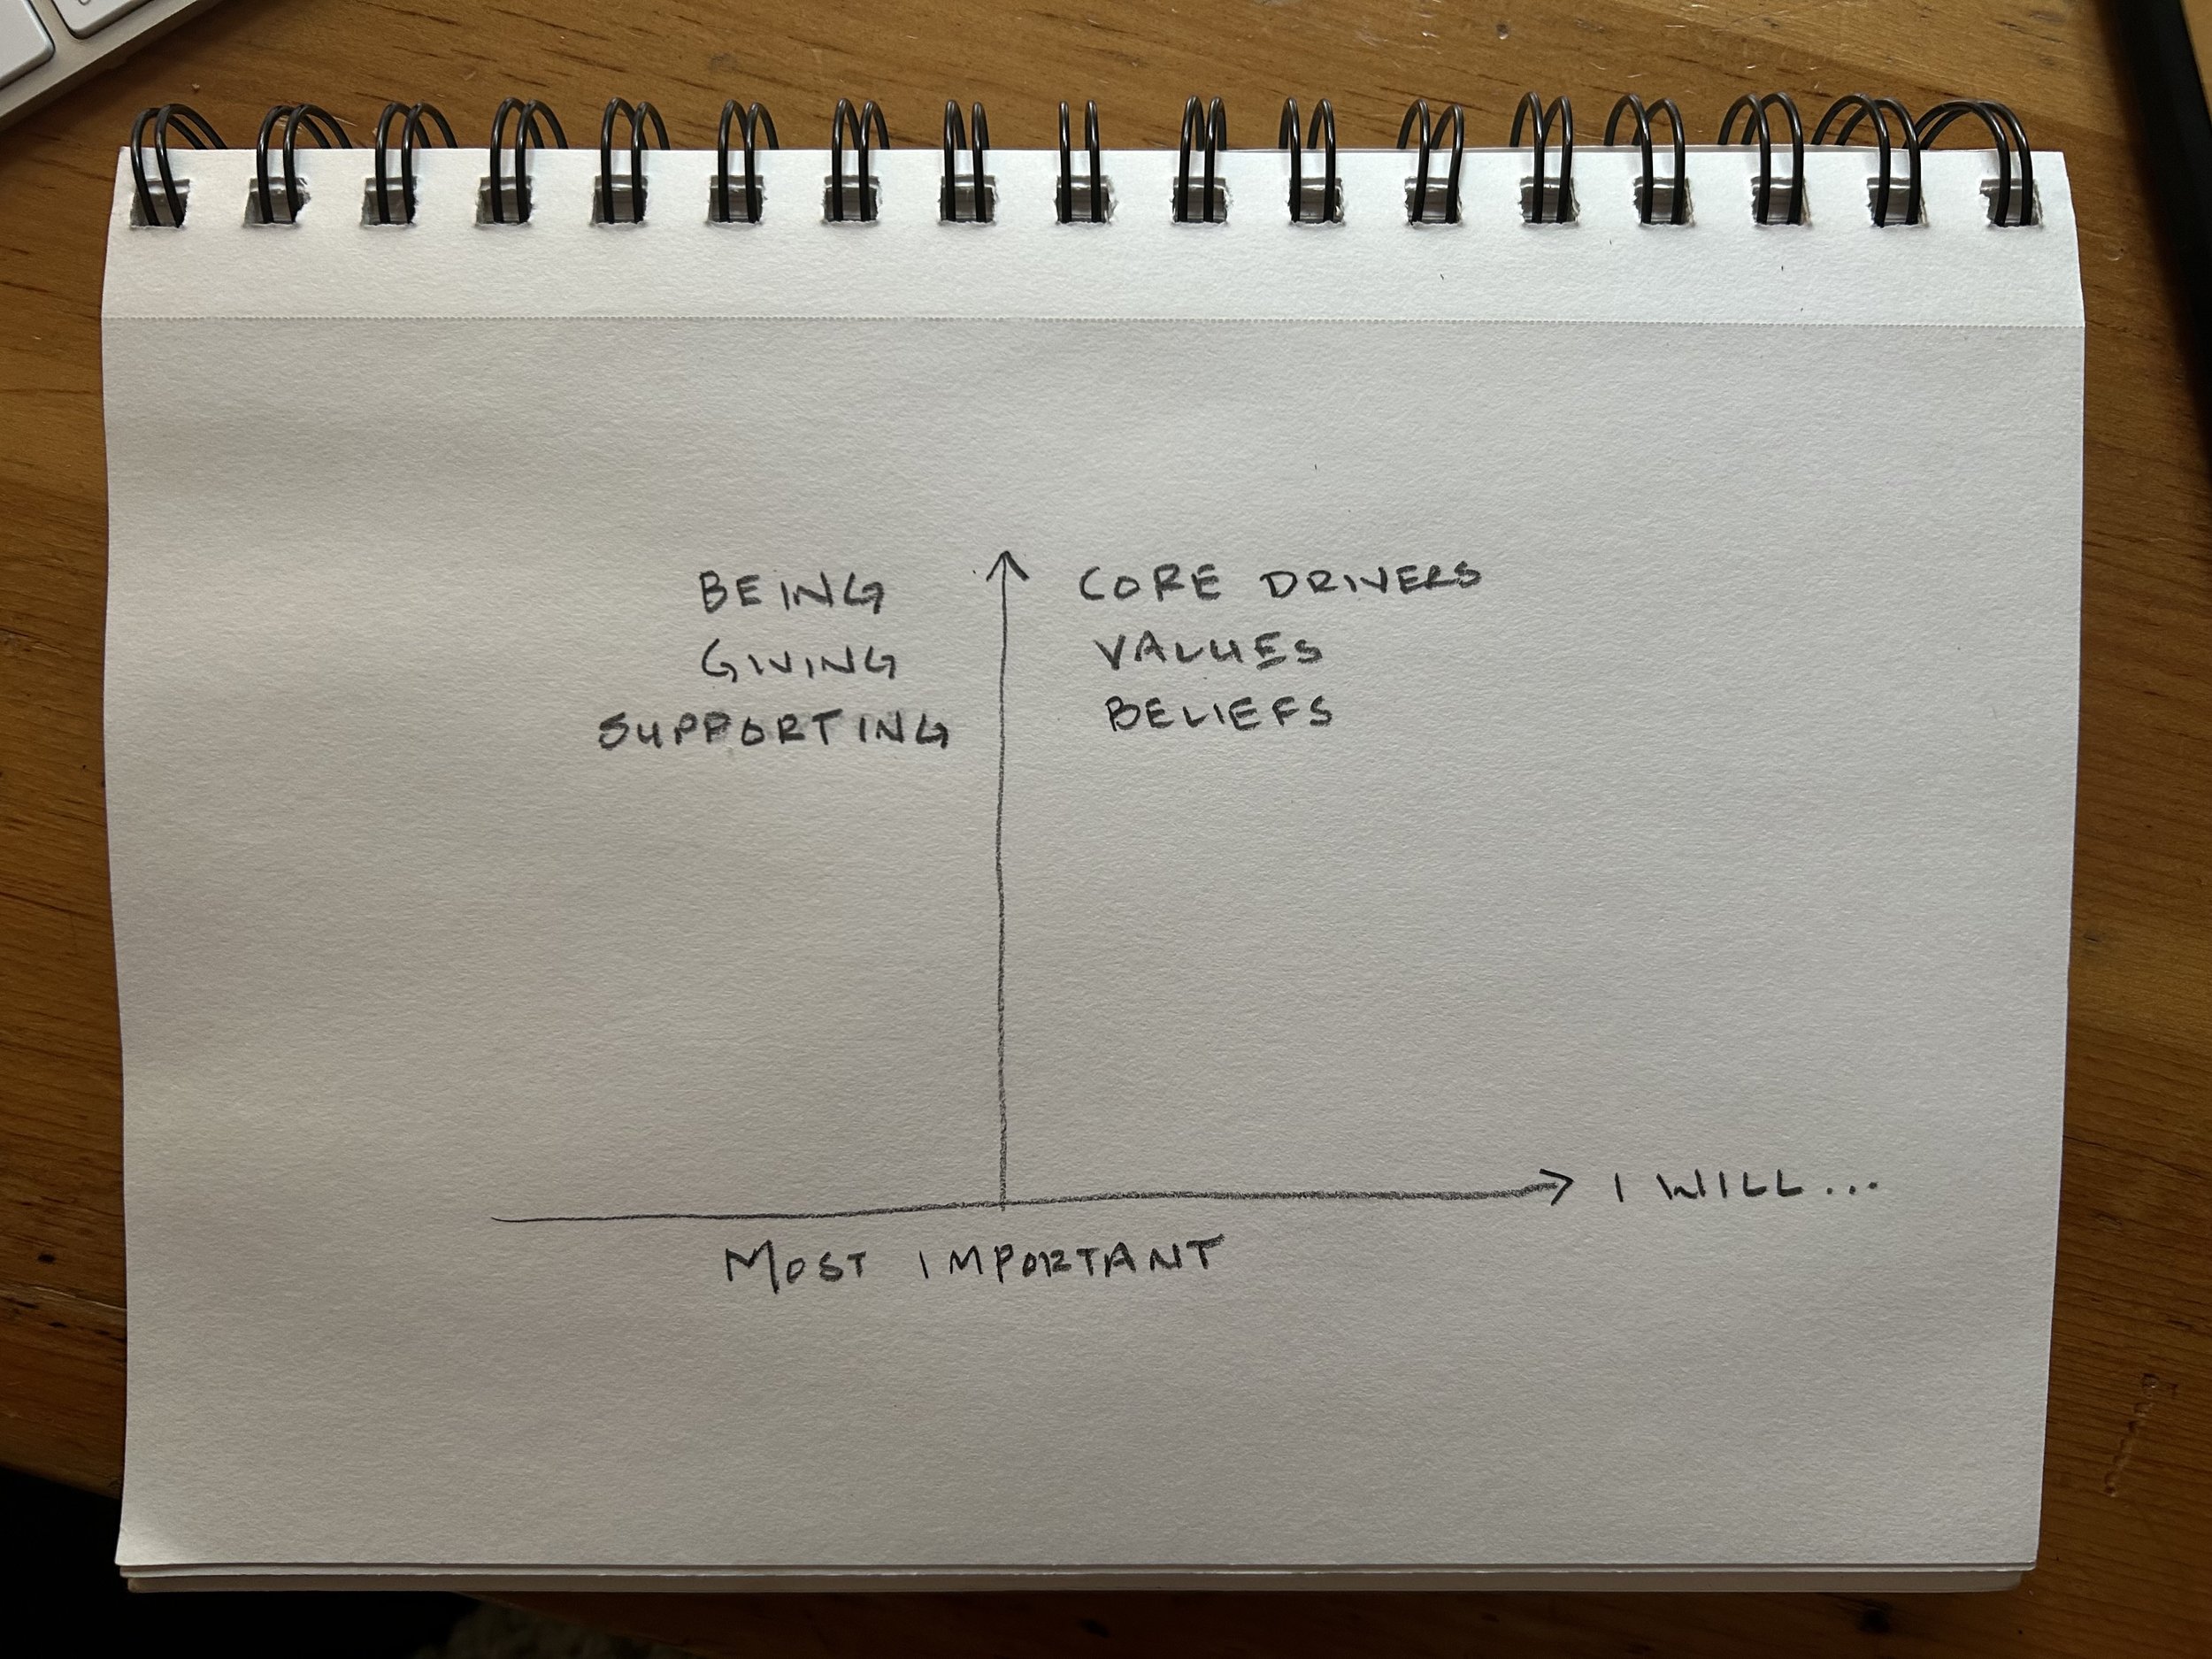 BEING
GIVING
SUPPORTING
CORE DRIVERS
VALUES
BELIEFS
I WILL...
MOST IMPORTANT